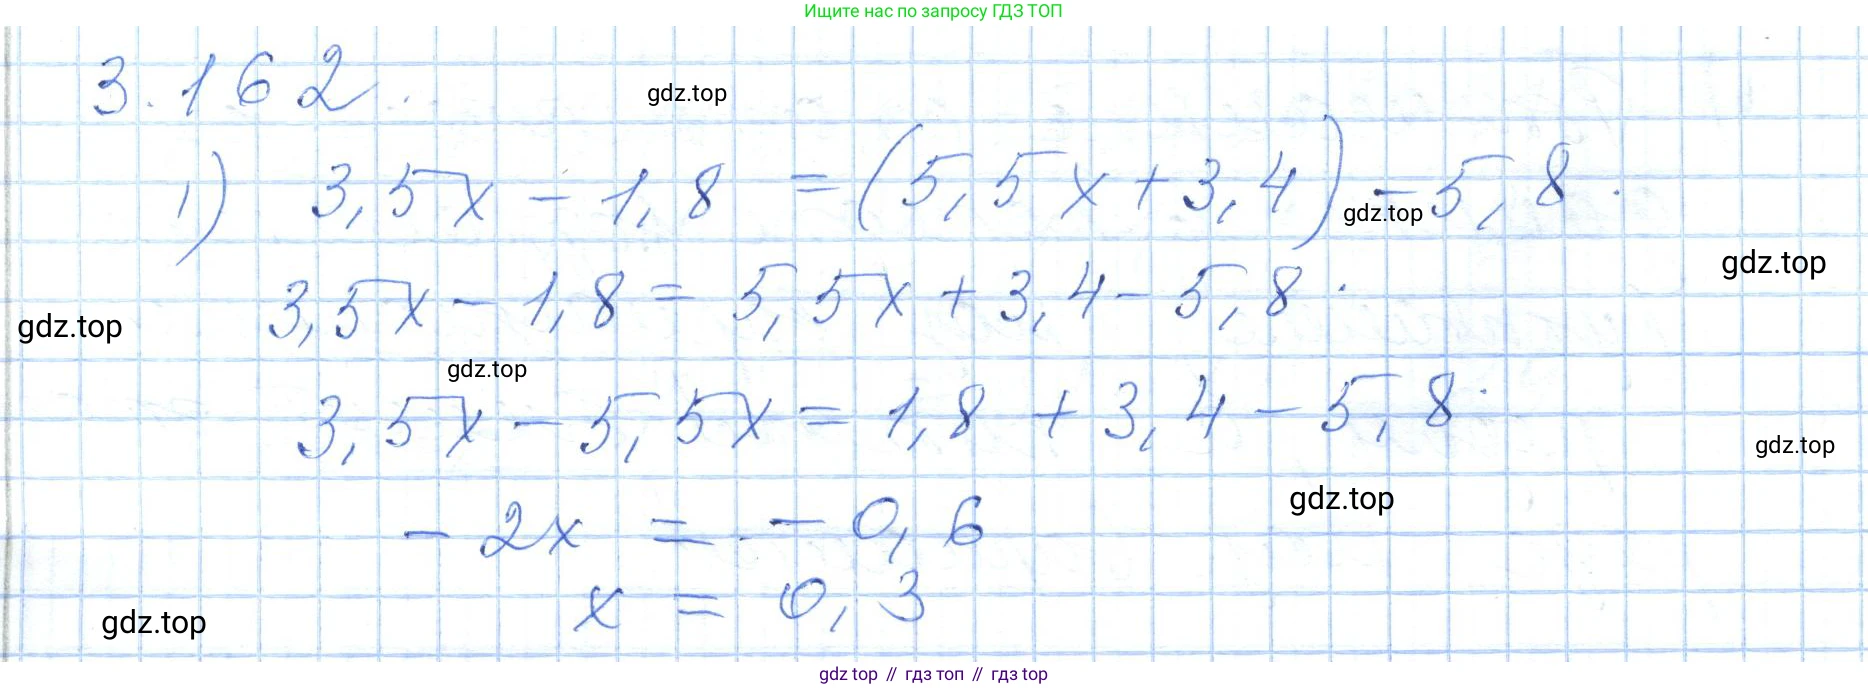 Ищите нас по запросу ГДЗ ТОП
3.162.
gdz.top
1) 3,5x - 1,8 = (5,5x + 3,4) - 5,8.
gdz.top
gdz.top
3,5x - 1,8 = 5,5x + 3,4 - 5,8.
gdz.top
gdz.top
3,5x - 5,5x = 1,8 + 3,4 - 5,8.
gdz.top
gdz.top
- 2x = - 0,6
x = 0,3
gdz.top
gdz top // гдз топ // гдз top